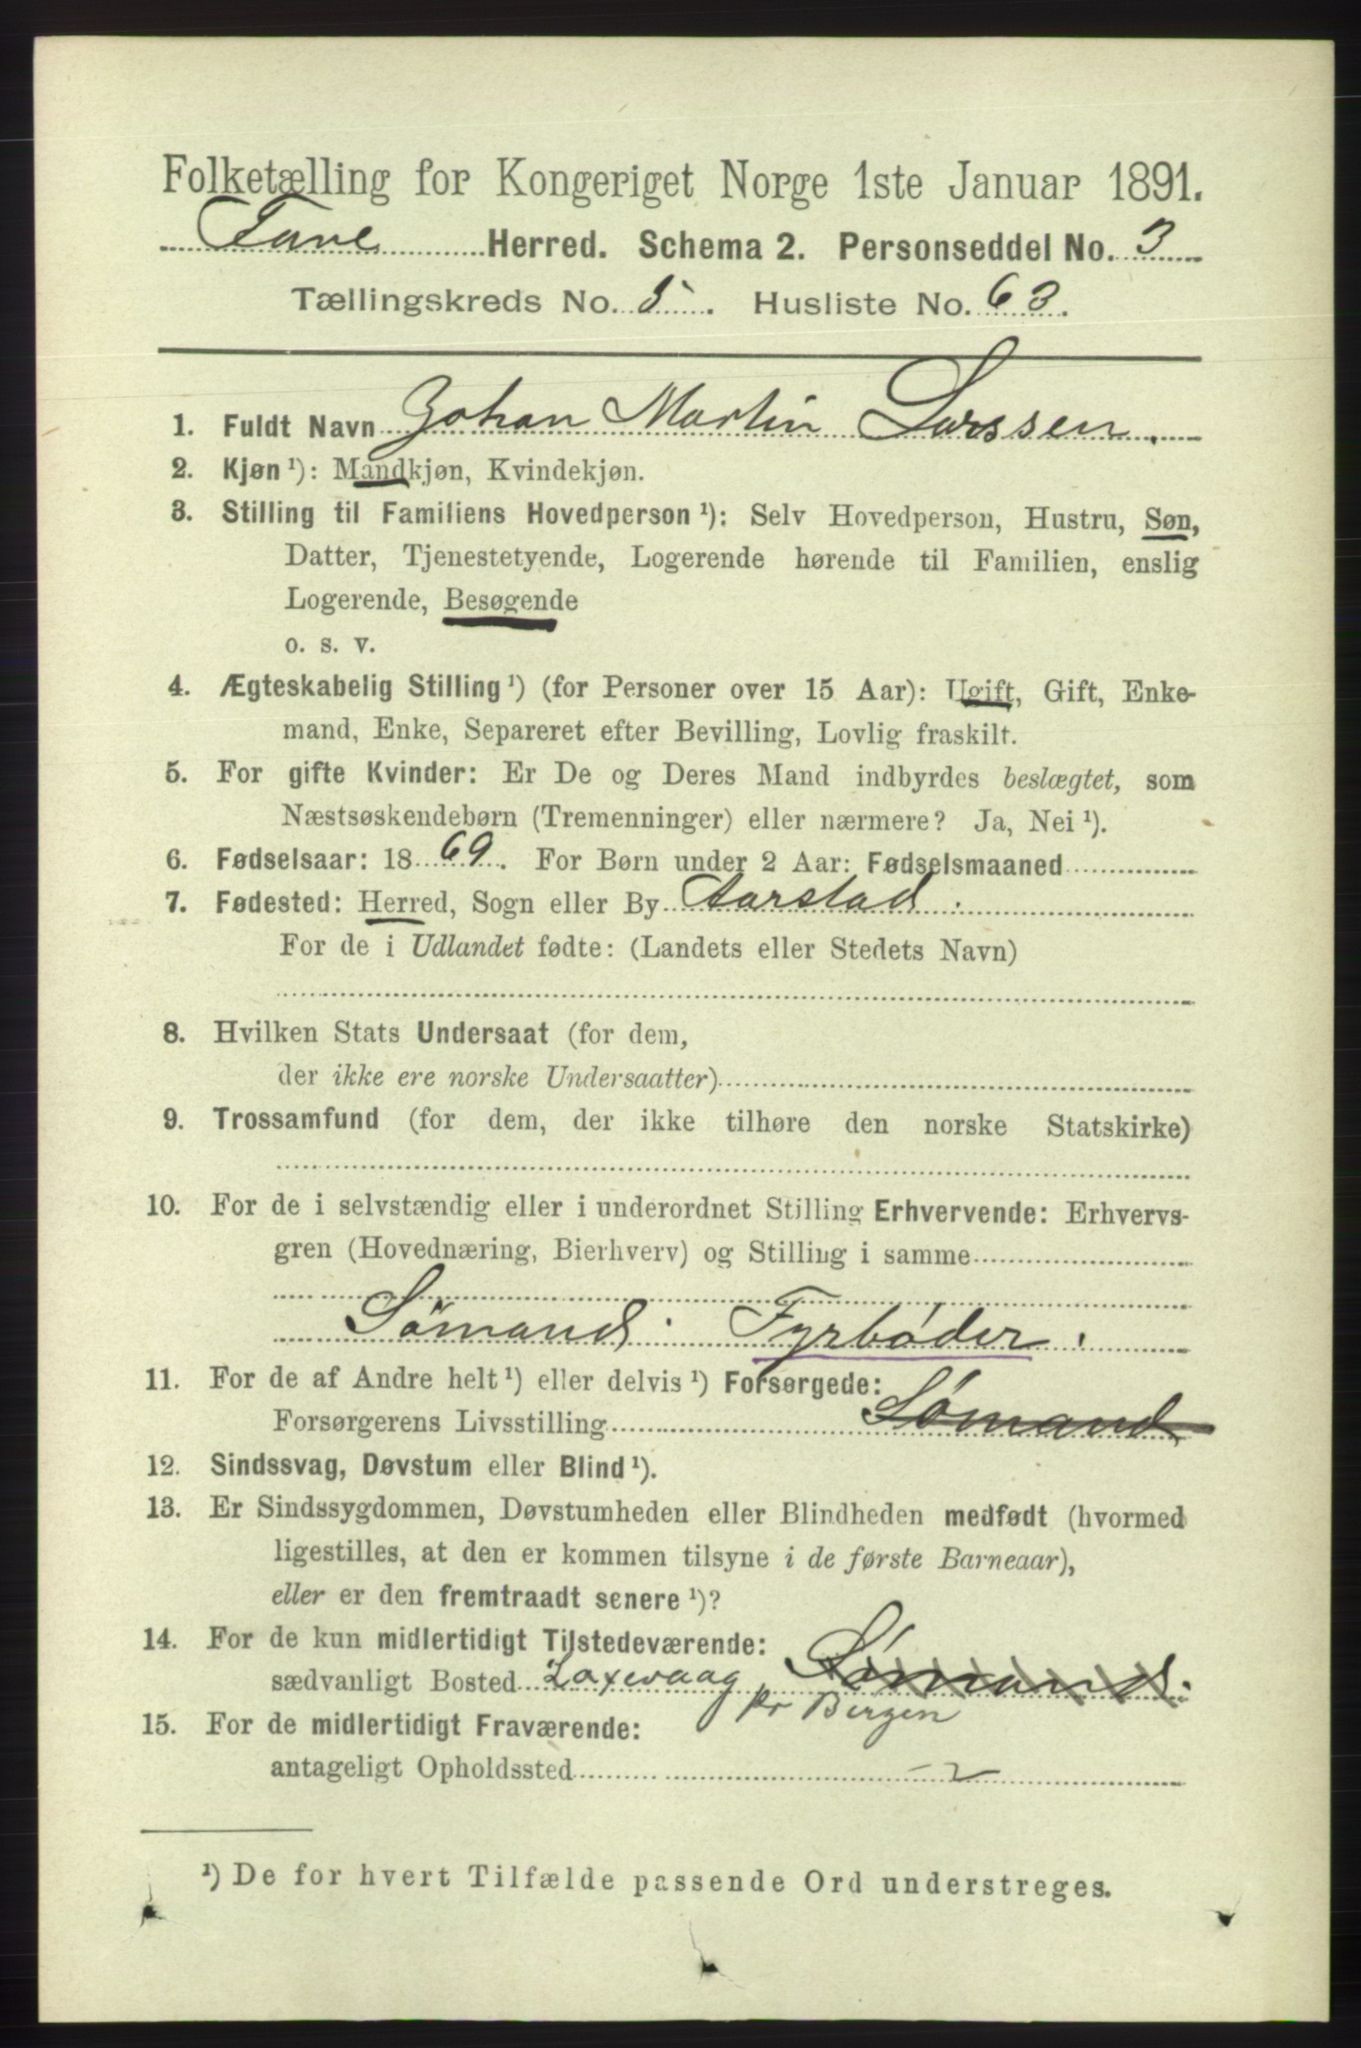 Folketælling for Kongeriget Norge 1ste Januar 1891.
Fane Herred. Schema 2. Personseddel No. 3
Tællingskreds No. 5. Husliste No. 63.
1. Fuldt Navn Johan Martin Larssen.
2. Kjøn ¹): Mandkjøn, Kvindekjøn.
3. Stilling til Familiens Hovedperson ¹): Selv Hovedperson, Hustru, Søn,
Datter, Tjenestetyende, Logerende hørende til Familien, enslig
Logerende, Besøgende
o. s. v.
4. Ægteskabelig Stilling ¹) (for Personer over 15 Aar): Ugift, Gift, Enke-
mand, Enke, Separeret efter Bevilling, Lovlig fraskilt.
5. For gifte Kvinder: Er De og Deres Mand indbyrdes beslægtet, som
Næstsøskendebørn (Tremenninger) eller nærmere? Ja, Nei ¹).
6. Fødselsaar: 1869. For Børn under 2 Aar: Fødselsmaaned
7. Fødested: Herred, Sogn eller By Aarstad.
For de i Udlandet fødte: (Landets eller Stedets Navn)
8. Hvilken Stats Undersaat (for dem,
der ikke ere norske Undersaatter)
9. Trossamfund (for dem, der ikke tilhøre den norske Statskirke)
10. For de i selvstændig eller i underordnet Stilling Erhvervende: Erhvervs-
gren (Hovednæring, Bierhverv) og Stilling i samme
Sømand. Fyrbøder.
11. For de af Andre helt ¹) eller delvis ¹) Forsørgede:
Forsørgerens Livsstilling Sømand
12. Sindssvag, Døvstum eller Blind ¹).
13. Er Sindssygdommen, Døvstumheden eller Blindheden medfødt (hvormed
ligestilles, at den er kommen tilsyne i de første Barneaar),
eller er den fremtraadt senere ¹)?
14. For de kun midlertidigt Tilstedeværende:
sædvanligt Bosted Laxevaag Sømand.
pr Bergen
15. For de midlertidigt Fraværende:
antageligt Opholdssted
¹) De for hvert Tilfælde passende Ord understreges.